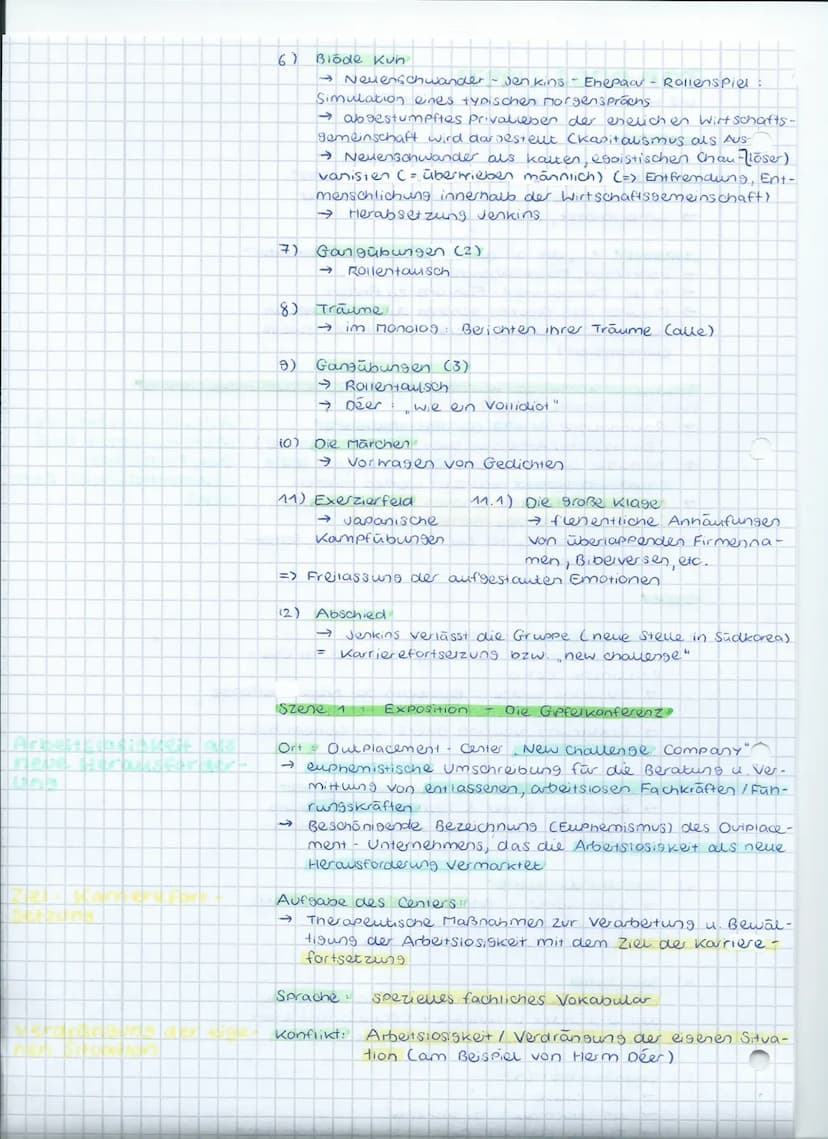 6) Blöde Kuh
→ Neuenschwander - Jenkins - Ehepaar - Rollenspiel :
Simulation eines typischen Morgensprächs
→ abgestumpftes Privatleben der ehelichen Wirtschafts-
gemeinschaft wird dargestellt (Kapitalismus als Aus-
→ Neuenschwander als kalten, egoistischen Chau- löser)
vanisten (= übertrieben männlich) (=> Entfremdung, Ent-
menschlichung innerhalb der Wirtschaftsgemeinschaft)
→ Herabsetzung Jenkins
7) Gangübungen (2)
→ Rollentausch
8) Träume
→ im Monolog : Berichten ihrer Träume (alle)
9) Gangübungen (3)
→ Rollentausch
→ Déer : „wie ein Vollidiot"
10) Die Märchen
→ Vortragen von Gedichten
11) Exerzierfeld 11.1) Die große Klage
→ Japanische → flehentliche Anhäufungen
Kampfübungen von überlappenden Firmenna-
men, Bibelversen, etc.
=> Freilassung der aufgestauten Emotionen
12) Abschied
→ Jenkins verlässt die Gruppe (neue Stelle in Südkorea)
= Karrierefortsetzung bzw. „new challenge"
Szene 1 : Exposition - Die Gipfelkonferenz
Arbeitslosigkeit als
neue Herausforder-
ung
Ort = Outplacement - Center „New Challenge Company"
→ euphemistische Umschreibung für die Beratung u. Ver-
mittlung von entlassenen, arbeitslosen Fachkräften / Füh-
rungskräften
→ Beschönigende Bezeichnung (Euphemismus) des Outplace-
ment - Unternehmens, das die Arbeitslosigkeit als neue
Herausforderung vermarktet
Ziel: Karrierefort-
setzung
Aufgabe des Centers:
→ Therapeutische Maßnahmen zur Verarbeitung u. Bewäl-
tigung der Arbeitslosigkeit mit dem Ziel der Karriere-
fortsetzung
Sprache: spezielles fachliches Vokabular
Verdrängung der eige-
nen Situation
Konflikt: Arbeitslosigkeit / Verdrängung der eigenen Situa-
tion (am Beispiel von Herrn Déer)